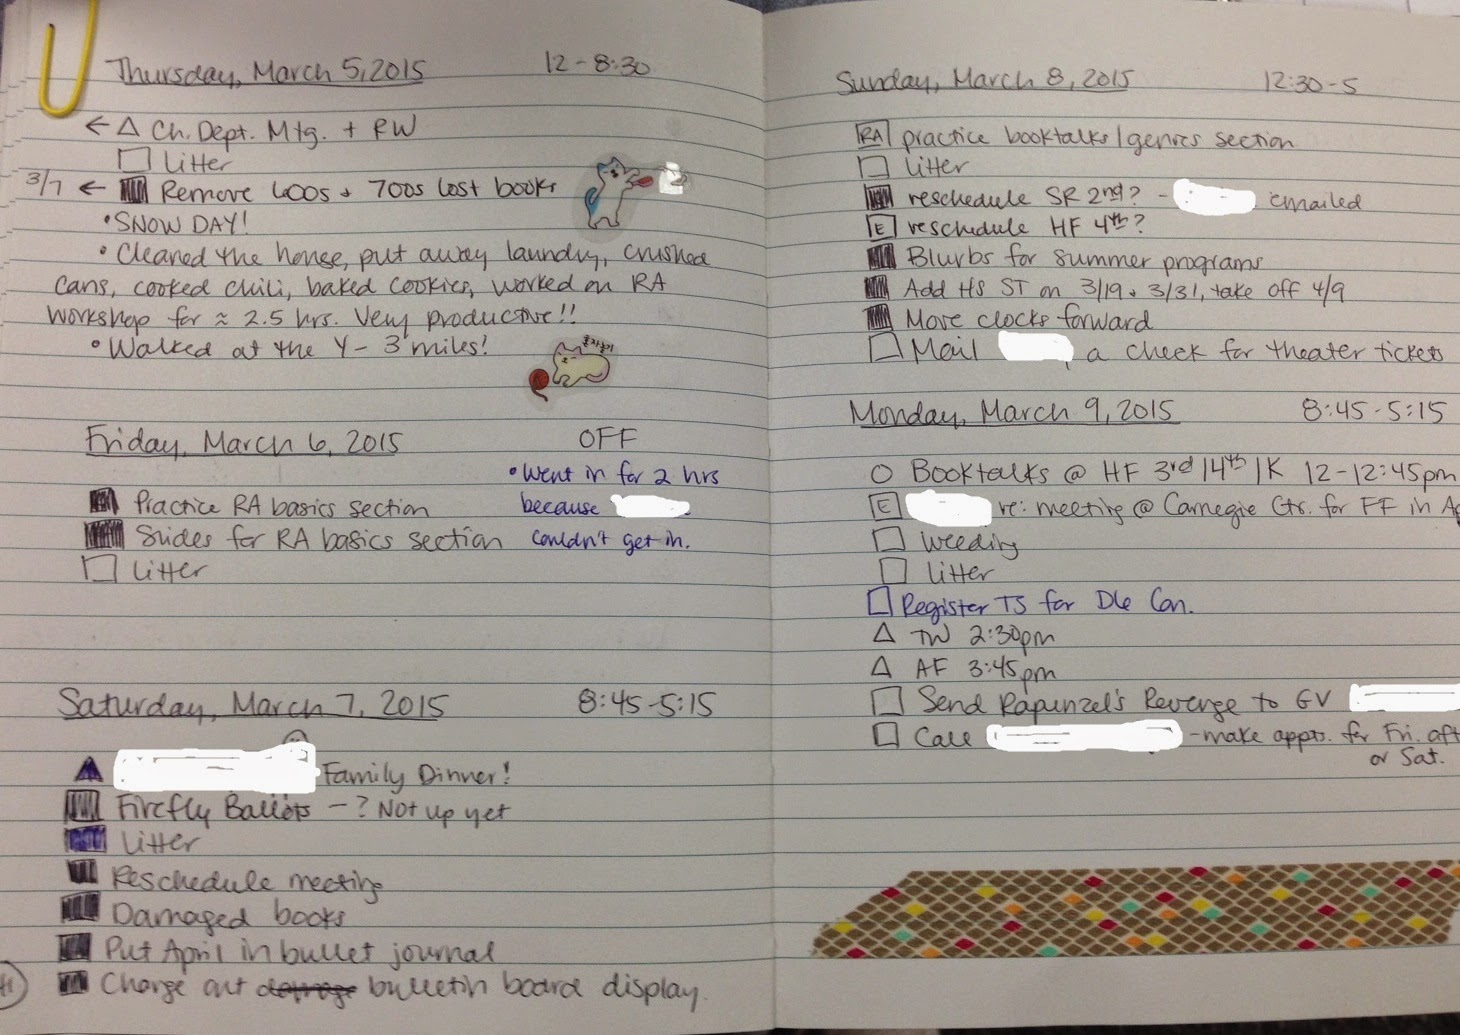 Thursday, March 5, 2015 12-8:30
← △ Ch. Dept. Mtg. + RW
□ Litter
3/7 ← Remove 600s + 700s lost books
• SNOW DAY!
• Cleaned the house, put away laundry, crushed
cans, cooked chili, baked cookies, worked on RA
workshop for ≈ 2.5 hrs. Very productive!!
• Walked at the Y - 3 miles!
Friday, March 6, 2015 OFF
• Went in for 2 hrs
because
couldn't get in.
Practice RA basics section
Slides for RA basics section
□ Litter
Saturday, March 7, 2015 8:45-5:15
Family Dinner!
Firefly Ballots - ? Not up yet
Litter
Reschedule meeting
Damaged books
Put April in bullet journal
Change out bulletin board display.
Sunday, March 8, 2015 12:30-5
RA practice booktalks/genres section
□ Litter
reschedule SR 2nd? - emailed
E reschedule HF 4th?
Blurbs for summer programs
Add HS ST on 3/19 + 3/31, take off 4/9
Move clocks forward
□ Mail , a check for theater tickets
Monday, March 9, 2015 8:45-5:15
O Booktalks @ HF 3rd/4th/K 12-12:45pm
E re: meeting @ Carnegie Ctr. for FF in
□ Weeding
□ Litter
□ Register TS for Con.
△ TW 2:30pm
△ AF 3:45pm
□ Send Rapunzel's Revenge to GV
□ Call - make appts. for Fri. aft
or Sat.